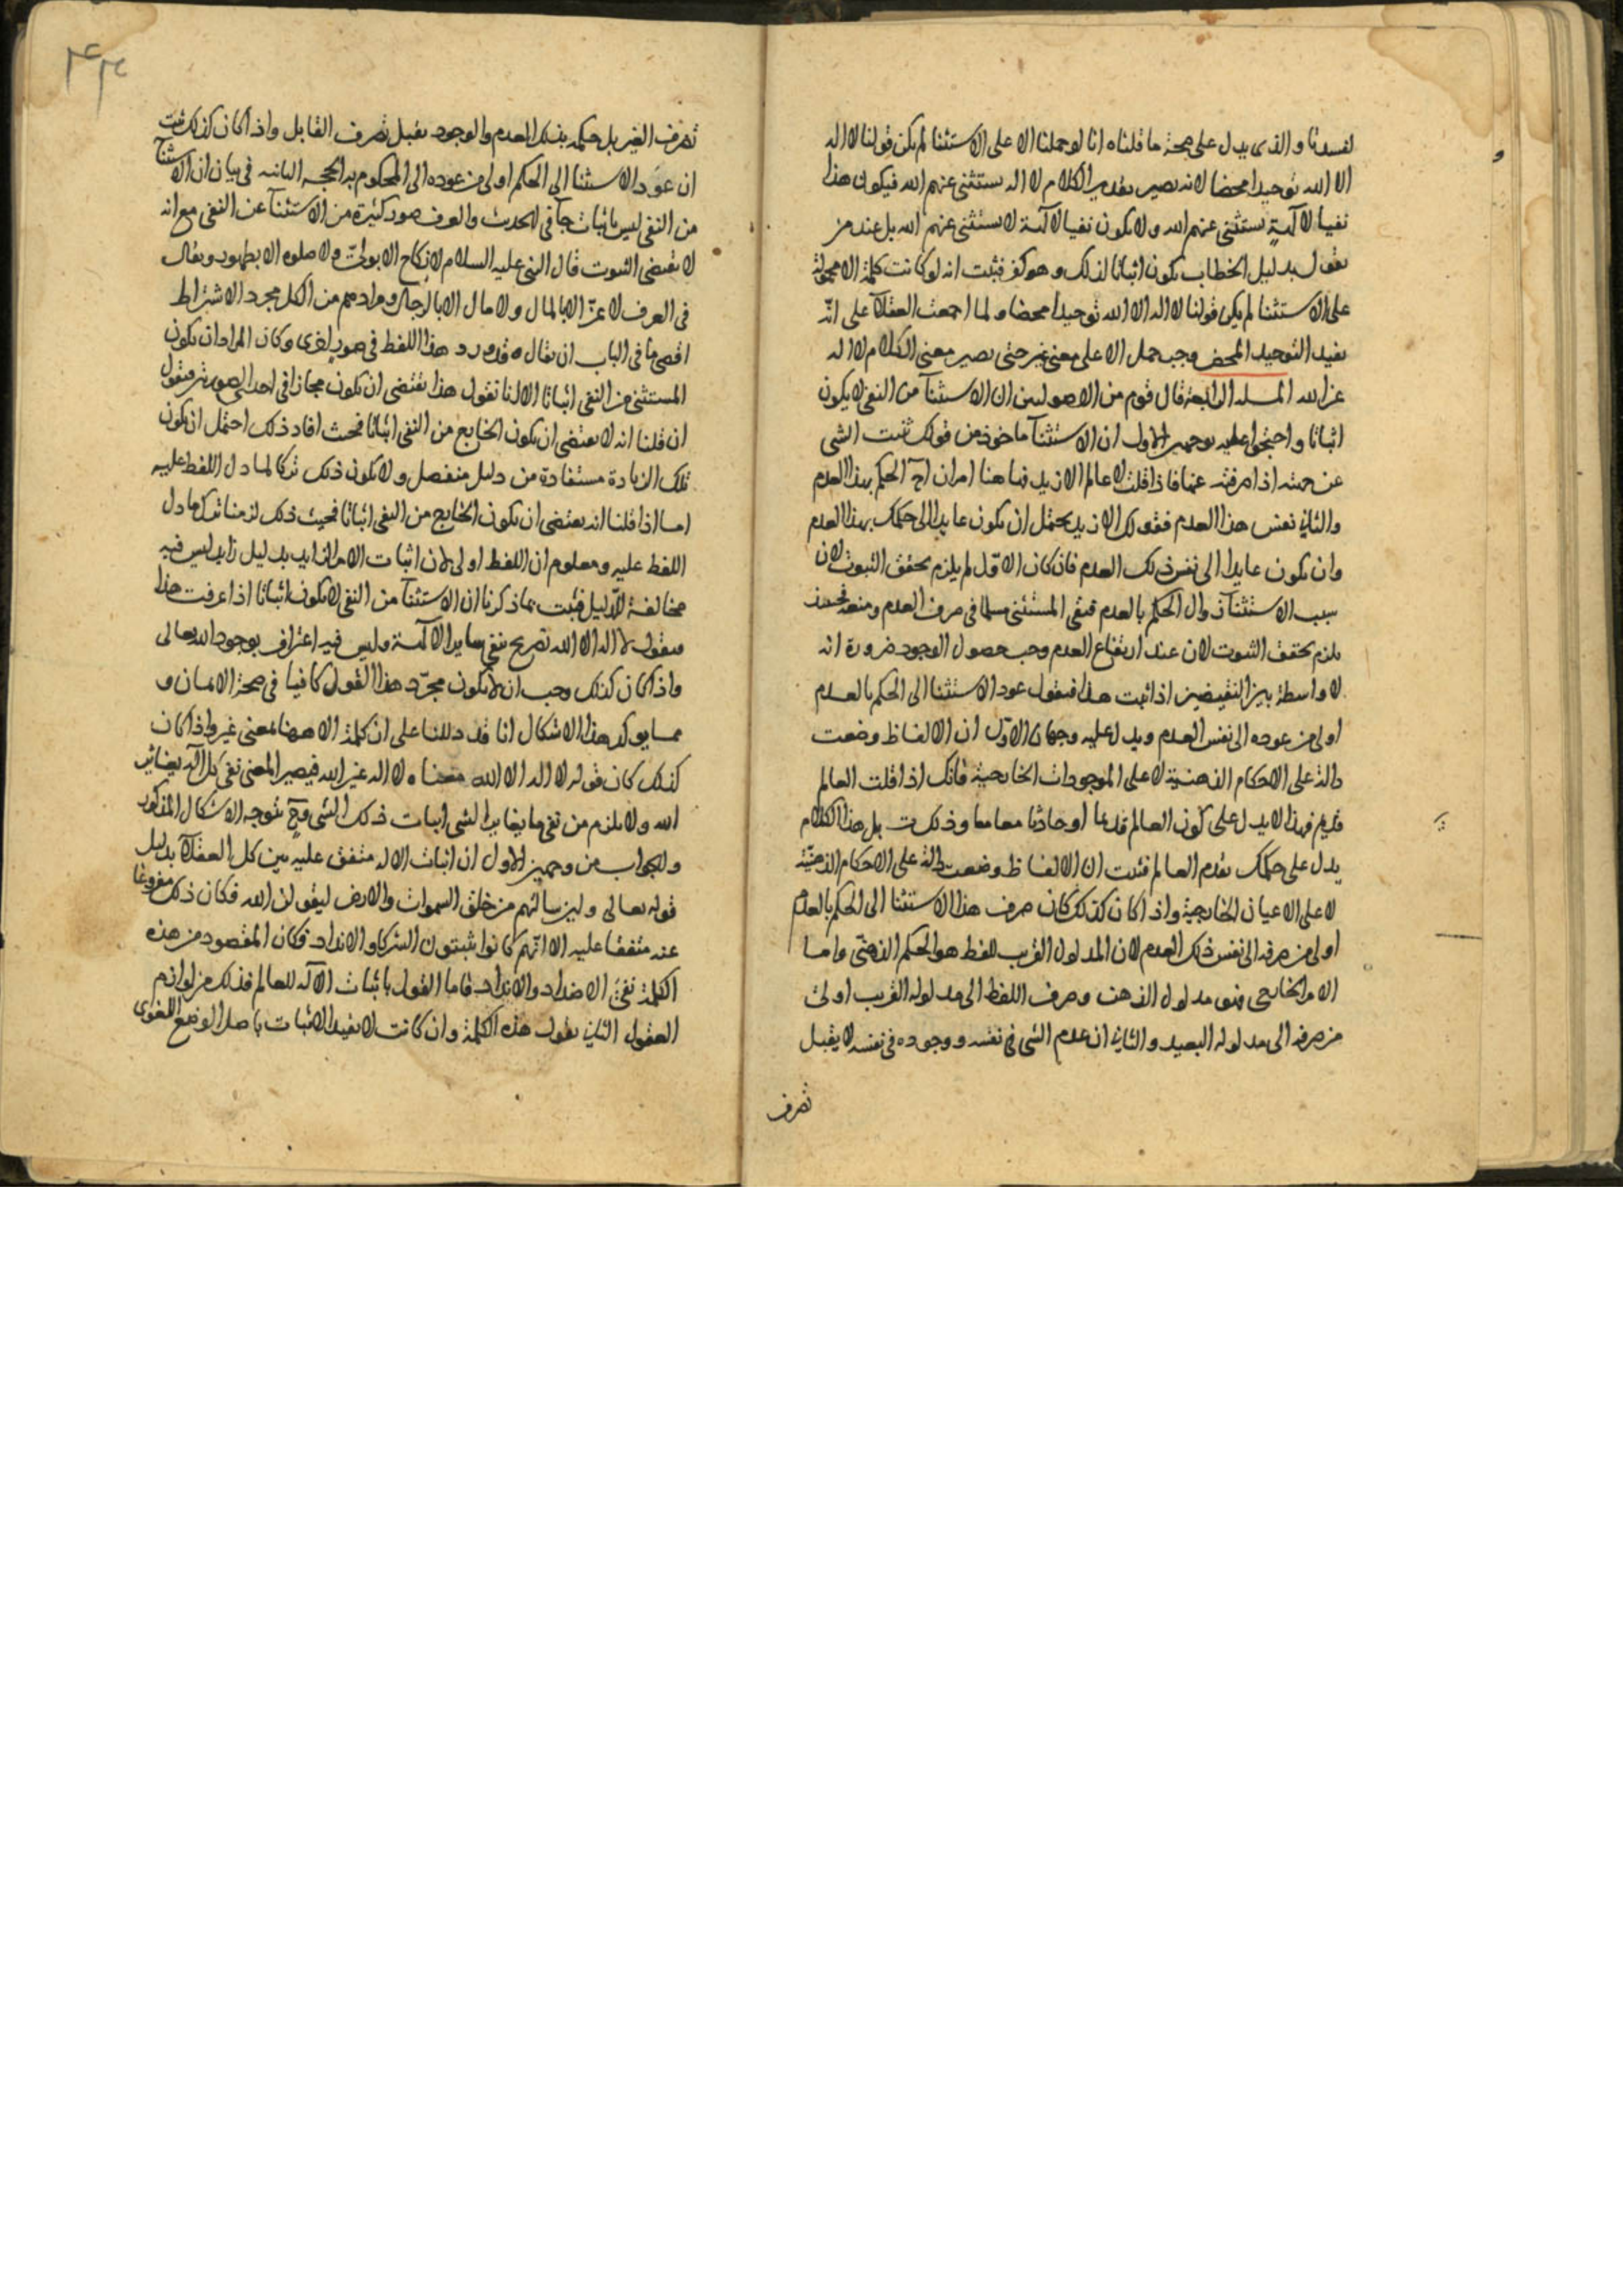 لفسدتا والذى يدل على صحة ما قلناه انا لو حملنا الا على الاستثنا لم يكن قولنا لا اله
الا الله توحيدا محضا لانه يصير تقدير الكلام لا اله يستثنى عنهم الله فيكون هذا
نفيا لآلهة يستثنى عنهم الله ولا يكون نفيا لآلهة لا يستثنى عنهم الله بل عند من
يقول بدليل الخطاب يكون اثباتا لذلك وهو كفر فثبت انه لو كانت كلمة الا محمولة
على الاستثنا لم يكن قولنا لا اله الا الله توحيدا محضا ولما اجمعت العقلآ على انه
يفيد التوحيد المحض وجب حمل الا على معنى غير حتى يصير معنى الكلام لا اله
غير الله المسلة الرابعة قال قوم من الاصوليين ان الاستثنآ من النفى لا يكون
اثباتا واحتجوا عليه بوجهين الاول ان الاستثنآ ماخوذ من قولك ثنيت الشى
عن جهته اذا صرفته عنها فاذا قلت لا عالم الا زيد فها هنا امران آ الحكم بهذا العدم
والثانى نفس هذا العدم فقولك الا زيد يحتمل ان يكون عايدا الى حكمك بهذا العدم
وان يكون عايدا الى نفس ذلك العدم فان كان الاول لم يلزم تحقق الثبوت لان
بسبب الاستثنآ زوال الحكم بالعدم فبقى المستثنى مسلما فى صرف العدم ومنعه فحينئذ
يلزم تحقق الثبوت لان عند ارتفاع العدم وجب حصول الوجود ضرورة انه
لا واسطة بين النقيضين اذا ثبت هذا فنقول عود الاستثنا الى الحكم بالعدم
اولى من عوده الى نفس العدم ويدل عليه وجهان الاول ان الالفاظ وضعت
دالة على الاحكام الذهنية لا على الموجودات الخارجية فانك اذا قلت العالم
قديم فهذا لا يدل على كون العالم قديما او حادثا معا معا وذلك بل هذا الكلام
يدل على حكمك بقدم العالم فثبت ان الالفاظ وضعت دالة على الاحكام الذهنية
لا على الاعيان الخارجية واذا كان كذلك كان صرف هذا الاستثنا الى الحكم بالعدم
اولى من صرفه الى نفس ذلك العدم لان المدلول القريب للفظ هو الحكم الذهنى واما
الامر الخارجى فهو مدلول الذهن وصرف اللفظ الى مدلوله القريب اولى
من صرفه الى مدلوله البعيد والثانى ان عدم الشى فى نفسه ووجوده فى نفسه لا يقبل
تصرف
٢٣٢
تصرف الغير بل حكمه بذلك العدم والوجود يقبل تصرف القابل واذا كان كذلك ثبت
ان عود الاستثنا الى الحكم اولى من عوده الى المحكوم به الحجه الثانيه فى بيان ان الاستثنآ
من النفى ليس باثبات جآ فى الحديث والعرف صور كثيرة من الاستثنآ عن النفى مع انه
لا يقتضى الثبوت قال النبى عليه السلام لا نكاح الا بولى ولا صلوه الا بطهور ويقال
فى العرف لا عز الا بالمال ولا مال الا بالرجال ومرادهم من الكل مجرد الاشتراط
اقصى ما فى الباب ان يقال قد ورد هذا اللفظ فى صور اخرى وكان المراد ان يكون
المستثنى من النفى اثباتا الا انا نقول هذا يقتضى ان يكون مجازا فى احدى الصورتين فنقول
ان قلنا انه لا يقتضى ان يكون الخارج من النفى اثباتا فحيث افاد ذلك احتمل ان يكون
تلك الزيادة مستفادة من دليل منفصل ولا يكون ذلك تركا لما دل اللفظ عليه
اما اذا قلنا انه يقتضى ان يكون الخارج من النفى اثباتا فحيث ذلك لزمنا ترك ما دل
اللفظ عليه ومعلوم ان اللفظ اولى لان اثبات الامر الزايد بدليل زايد ليس فيه
مخالفة للدليل فثبت بما ذكرنا ان الاستثنآ من النفى لا يكون اثباتا اذا عرفت هذا
فنقول لا اله الا الله تصريح بنفى ساير الآلهة وليس فيه اعتراف بوجود الله تعالى
واذا كان كذلك وجب ان لا يكون مجرد هذا القول كافيا فى صحة الايمان و
مما يوكد هذا الاشكال انا قد دللنا على ان كلمة الا ههنا بمعنى غير واذا كان
كذلك كان قوله لا اله الا الله معناه لا اله غير الله فيصير المعنى نفى كل اله يغاير
الله ولا يلزم من نفى ما يغاير الشى اثبات ذلك الشى وح يتوجه الاشكال المذكور
والجواب من وجهين الاول ان اثبات الاله متفق عليه بين كل العقلآ بدليل
قوله تعالى ولين سالتهم من خلق السموات والارض ليقولن الله فكان ذلك مفروغا
عنه متفقا عليه الا انهم كانوا يثبتون الشركا والانداد فكان المقصود من هذه
الكلمة نفى الاضداد والانداد فاما القول باثبات الآله للعالم فذلك من لوازم
العقول الثانى نقول هذه الكلمة وان كانت لا تفيد الاثبات باصل الوضع اللغوى